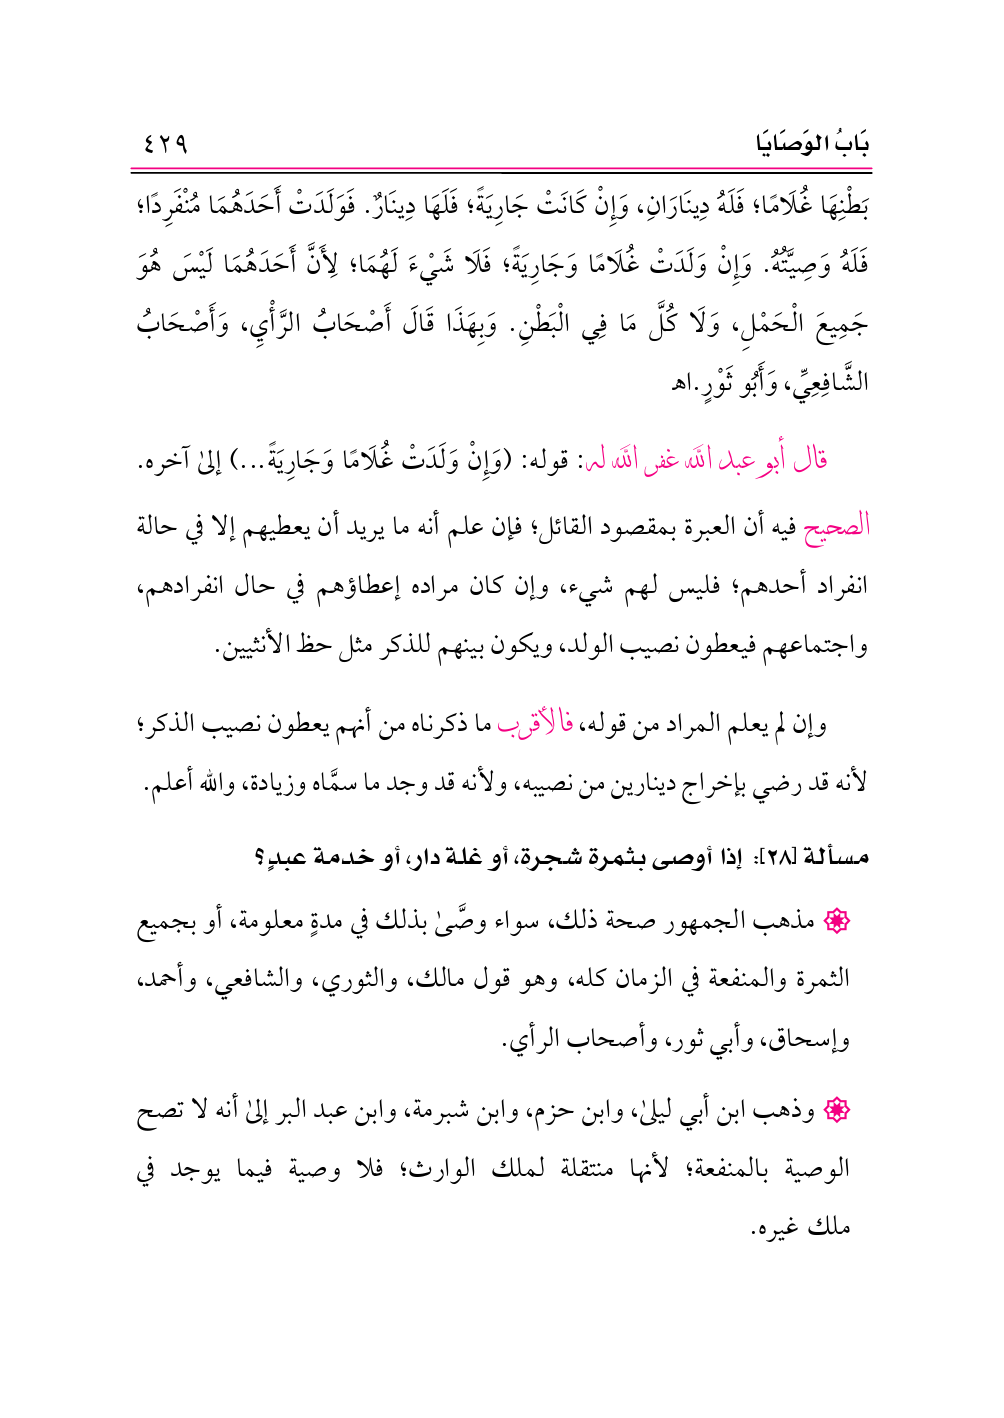 بَابُ الوَصَايَا ٤٢٩
بَطْنِهَا غُلَامًا؛ فَلَهُ دِينَارَانِ، وَإِنْ كَانَتْ جَارِيَةً؛ فَلَهَا دِينَارٌ. فَوَلَدَتْ أَحَدَهُمَا مُنْفَرِدًا؛
فَلَهُ وَصِيَّتُهُ. وَإِنْ وَلَدَتْ غُلَامًا وَجَارِيَةً؛ فَلَا شَيْءَ لَهُمَا؛ لِأَنَّ أَحَدَهُمَا لَيْسَ هُوَ
جَمِيعَ الْحَمْلِ، وَلَا كُلَّ مَا فِي الْبَطْنِ. وَبِهَذَا قَالَ أَصْحَابُ الرَّأْيِ، وَأَصْحَابُ
الشَّافِعِيِّ، وَأَبُو ثَوْرٍ.اهـ
قال أبو عبد الله غفر الله له: قوله: (وَإِنْ وَلَدَتْ غُلَامًا وَجَارِيَةً...) إلىٰ آخره.
الصحيح فيه أن العبرة بمقصود القائل؛ فإن علم أنه ما يريد أن يعطيهم إلا في حالة
انفراد أحدهم؛ فليس لهم شيء، وإن كان مراده إعطاؤهم في حال انفرادهم،
واجتماعهم فيعطون نصيب الولد، ويكون بينهم للذكر مثل حظ الأنثيين.
وإن لم يعلم المراد من قوله، فالأقرب ما ذكرناه من أنهم يعطون نصيب الذكر؛
لأنه قد رضي بإخراج دينارين من نصيبه، ولأنه قد وجد ما سمَّاه وزيادة، والله أعلم.
مسألة [٢٨]: إذا أوصى بثمرة شجرة، أو غلة دار، أو خدمة عبدٍ؟
مذهب الجمهور صحة ذلك، سواء وصَّىٰ بذلك في مدةٍ معلومة، أو بجميع
الثمرة والمنفعة في الزمان كله، وهو قول مالك، والثوري، والشافعي، وأحمد،
وإسحاق، وأبي ثور، وأصحاب الرأي.
وذهب ابن أبي ليلىٰ، وابن حزم، وابن شبرمة، وابن عبد البر إلىٰ أنه لا تصح
الوصية بالمنفعة؛ لأنها منتقلة لملك الوارث؛ فلا وصية فيما يوجد في
ملك غيره.